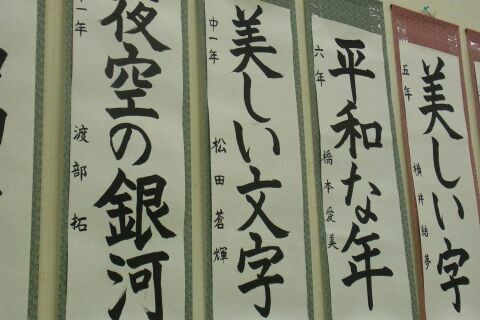 美しい字
五年
横井結夢
平和な年
六年
橋本愛美
美しい文字
中一年
松田蒼輝
夜空の銀河
中一年
渡部拓